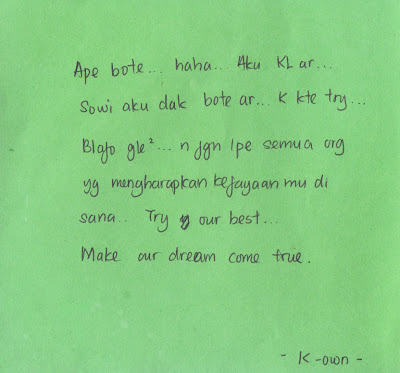 Ape bote... haha... Aku KL ar...
Sowi aku dak bote ar... K kte try...
Blajo gle²... n jgn lpe semua org
yg mengharapkan kejayaan mu di
sana.. Try our best...
Make our dream come true.
- K-own -